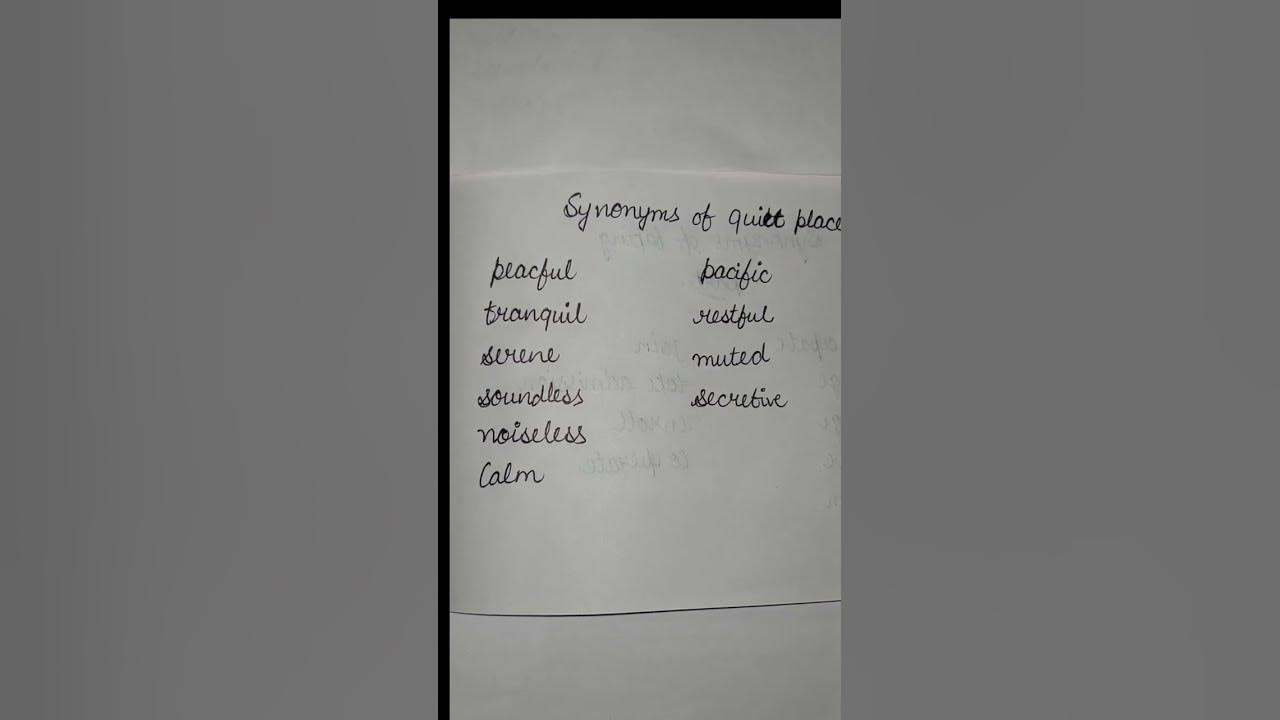 Synonyms of quiet place
peacful
tranquil
serene
soundless
noiseless
Calm
pacific
restful
muted
secretive